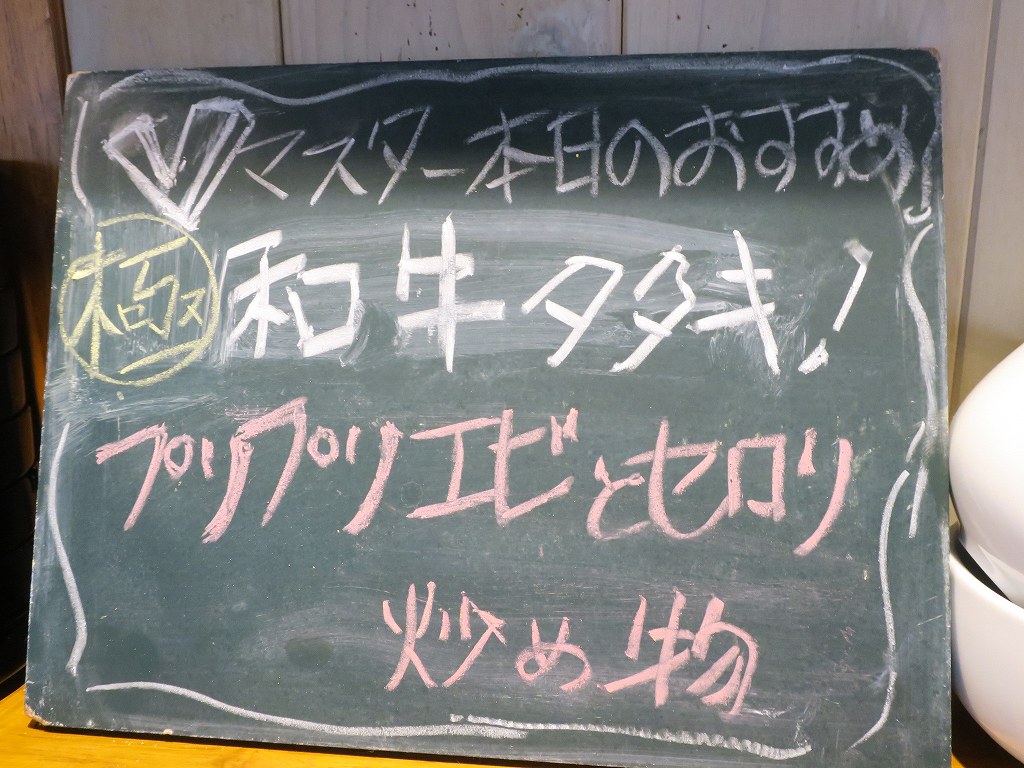 マスター本日のおすすめ
極 和牛タタキ!
プリプリエビとセロリ
炒め物